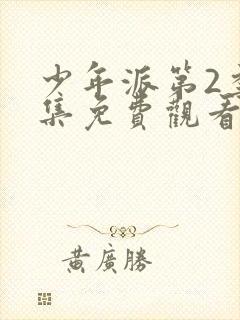 少年派第2
集免費觀看
黃廣勝